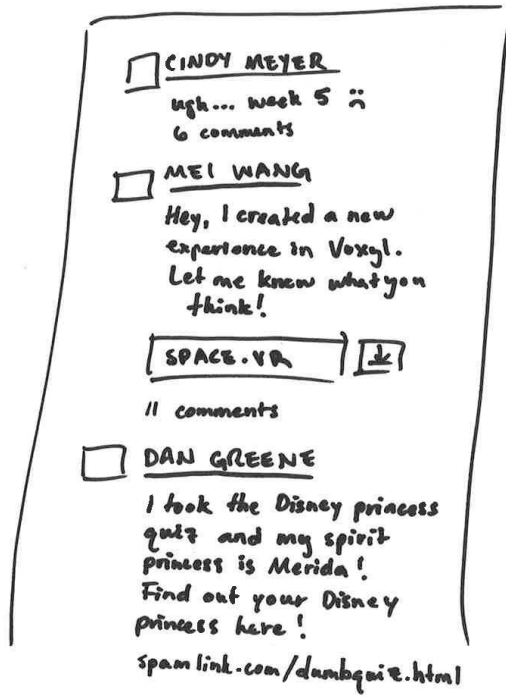 CINDY MEYER
ugh... week 5 :(
6 comments
MEI WANG
Hey, I created a new
experience in Voxyl.
Let me know what you
think!
SPACE.VR
11 comments
DAN GREENE
I took the Disney princess
quiz and my spirit
princess is Merida!
Find out your Disney
princess here!
spamlink.com/dumbquiz.html